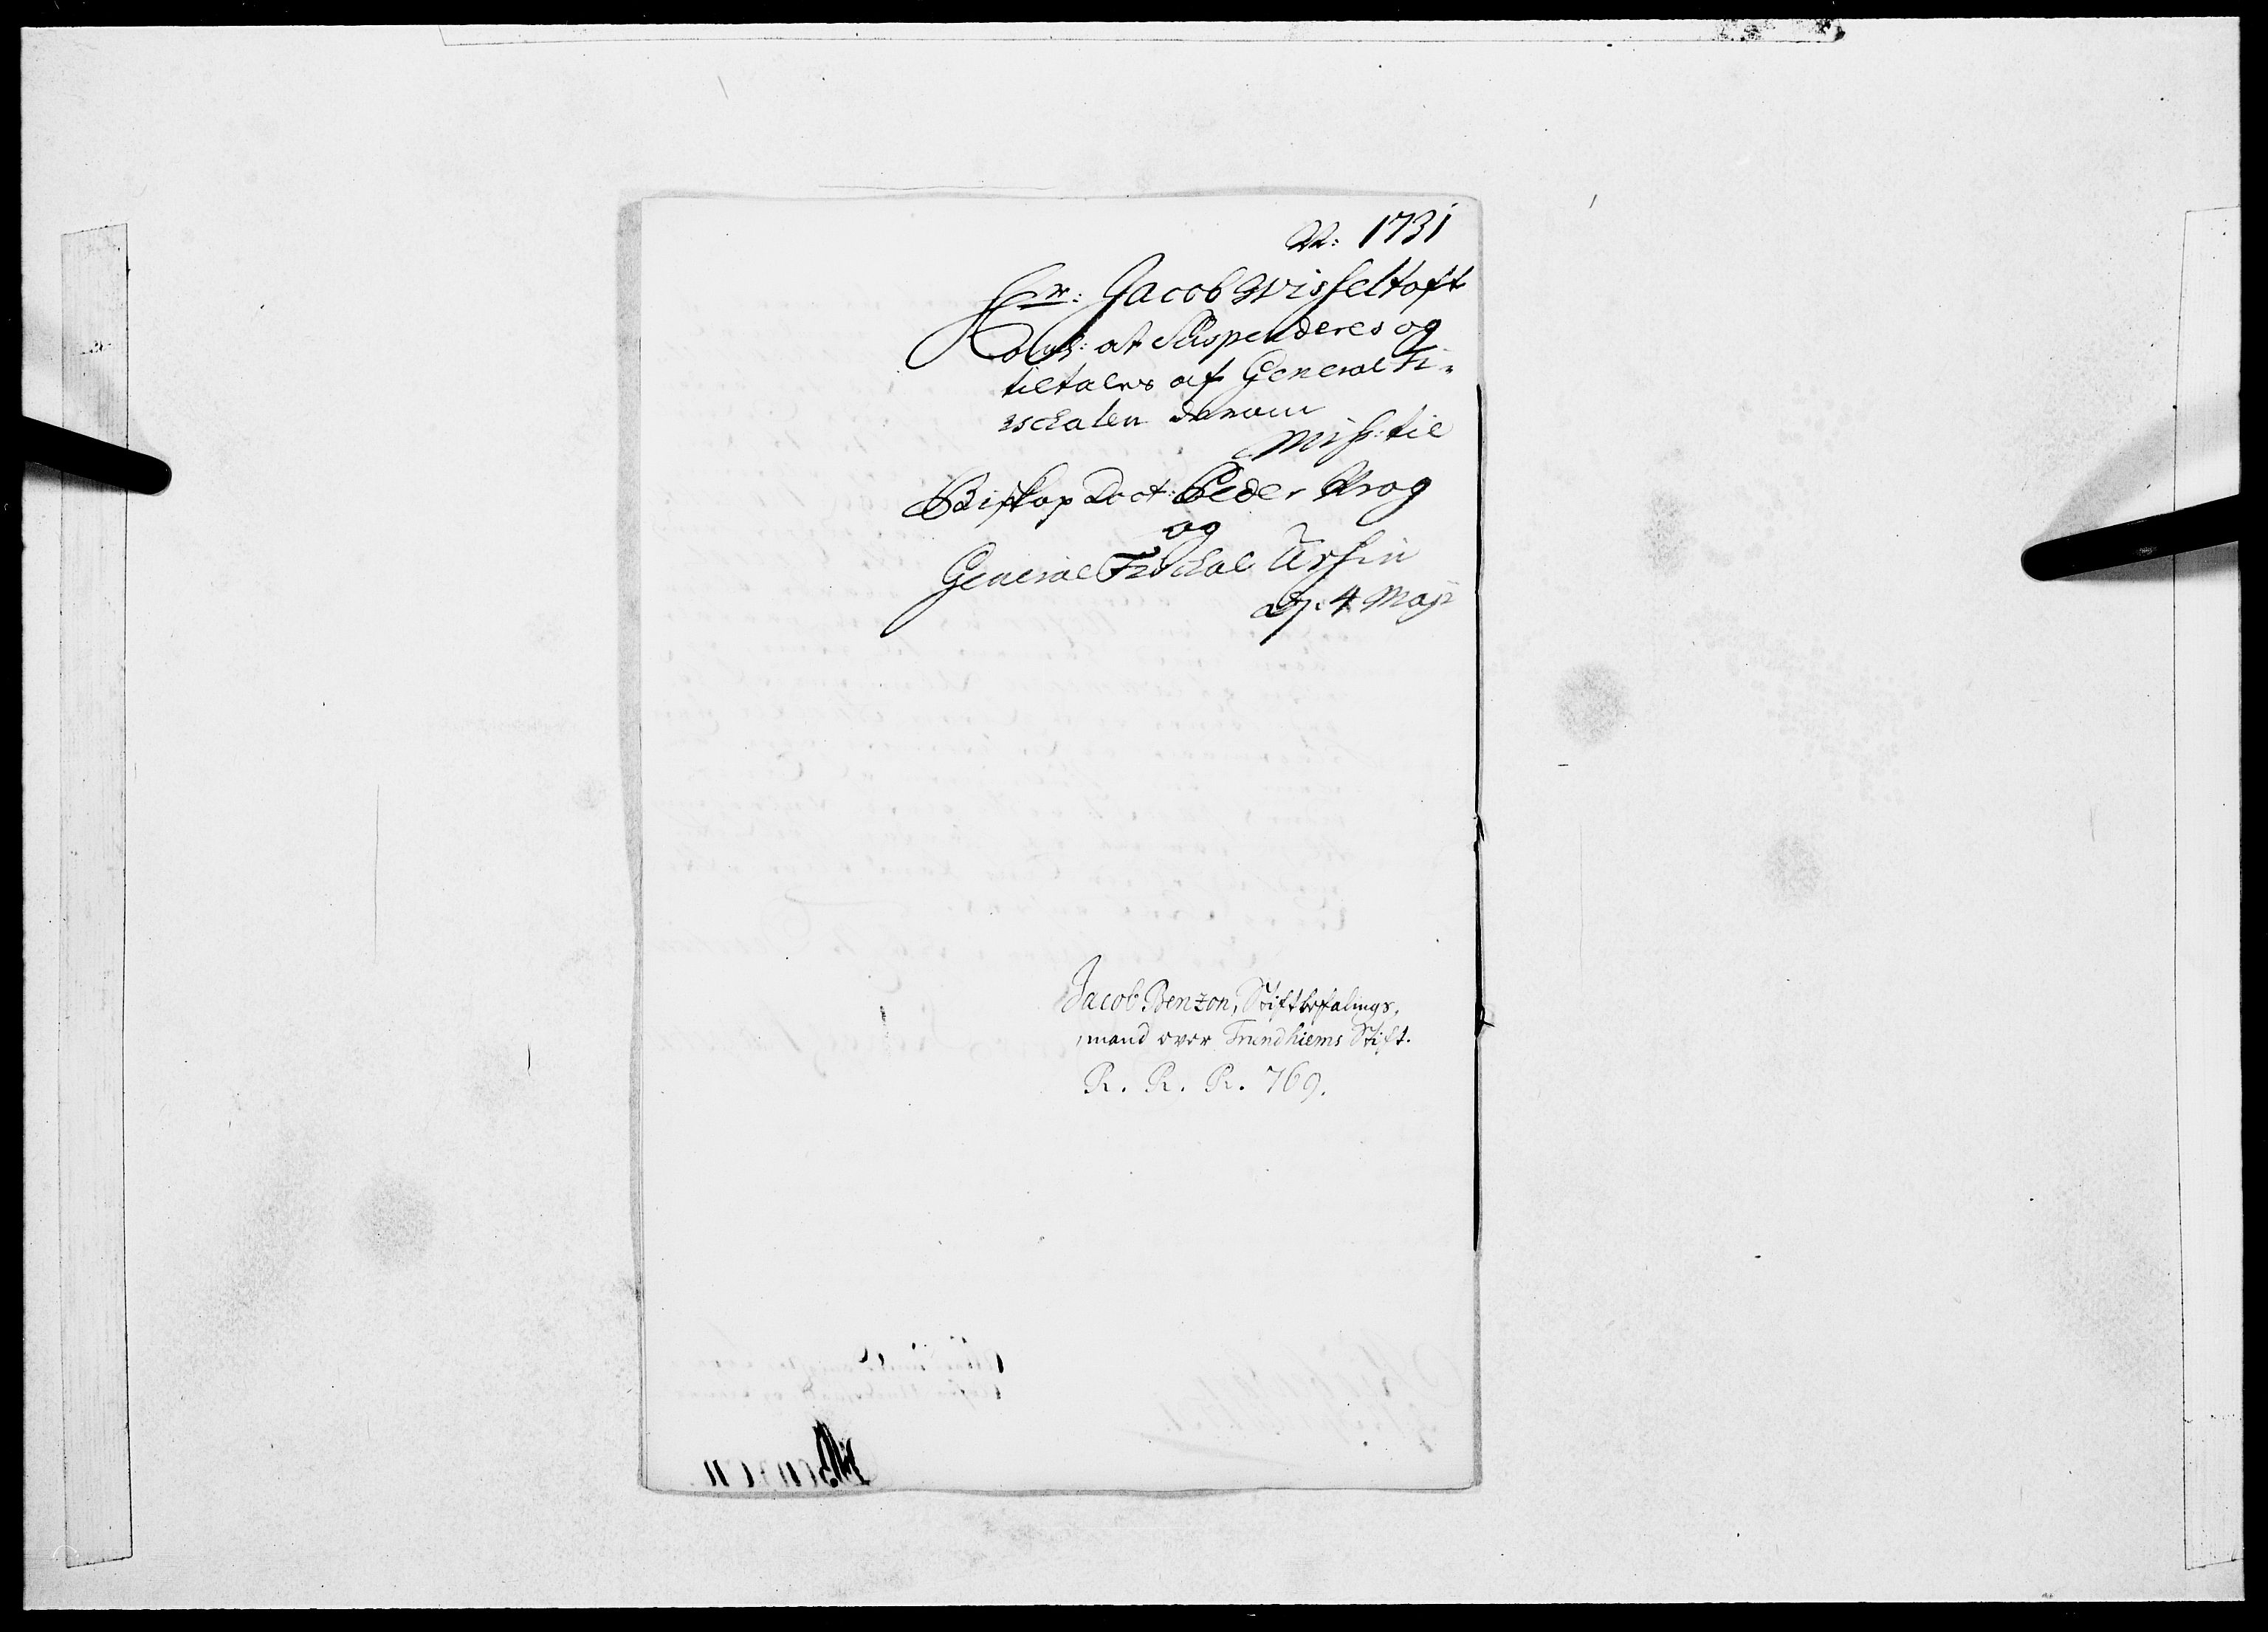 1731
Hr: Jacob Wisseltoft
at Suspenderes og
tiltales af General Fi-
schalen derom
Miss: til
Biskop Doct: Peder Krog
og
General Fischal Ursin
d. 4 Maji
Jacob Benzon, Stiftbefalings-
mand over Trundhiems Stift.
R. R. R. 769.